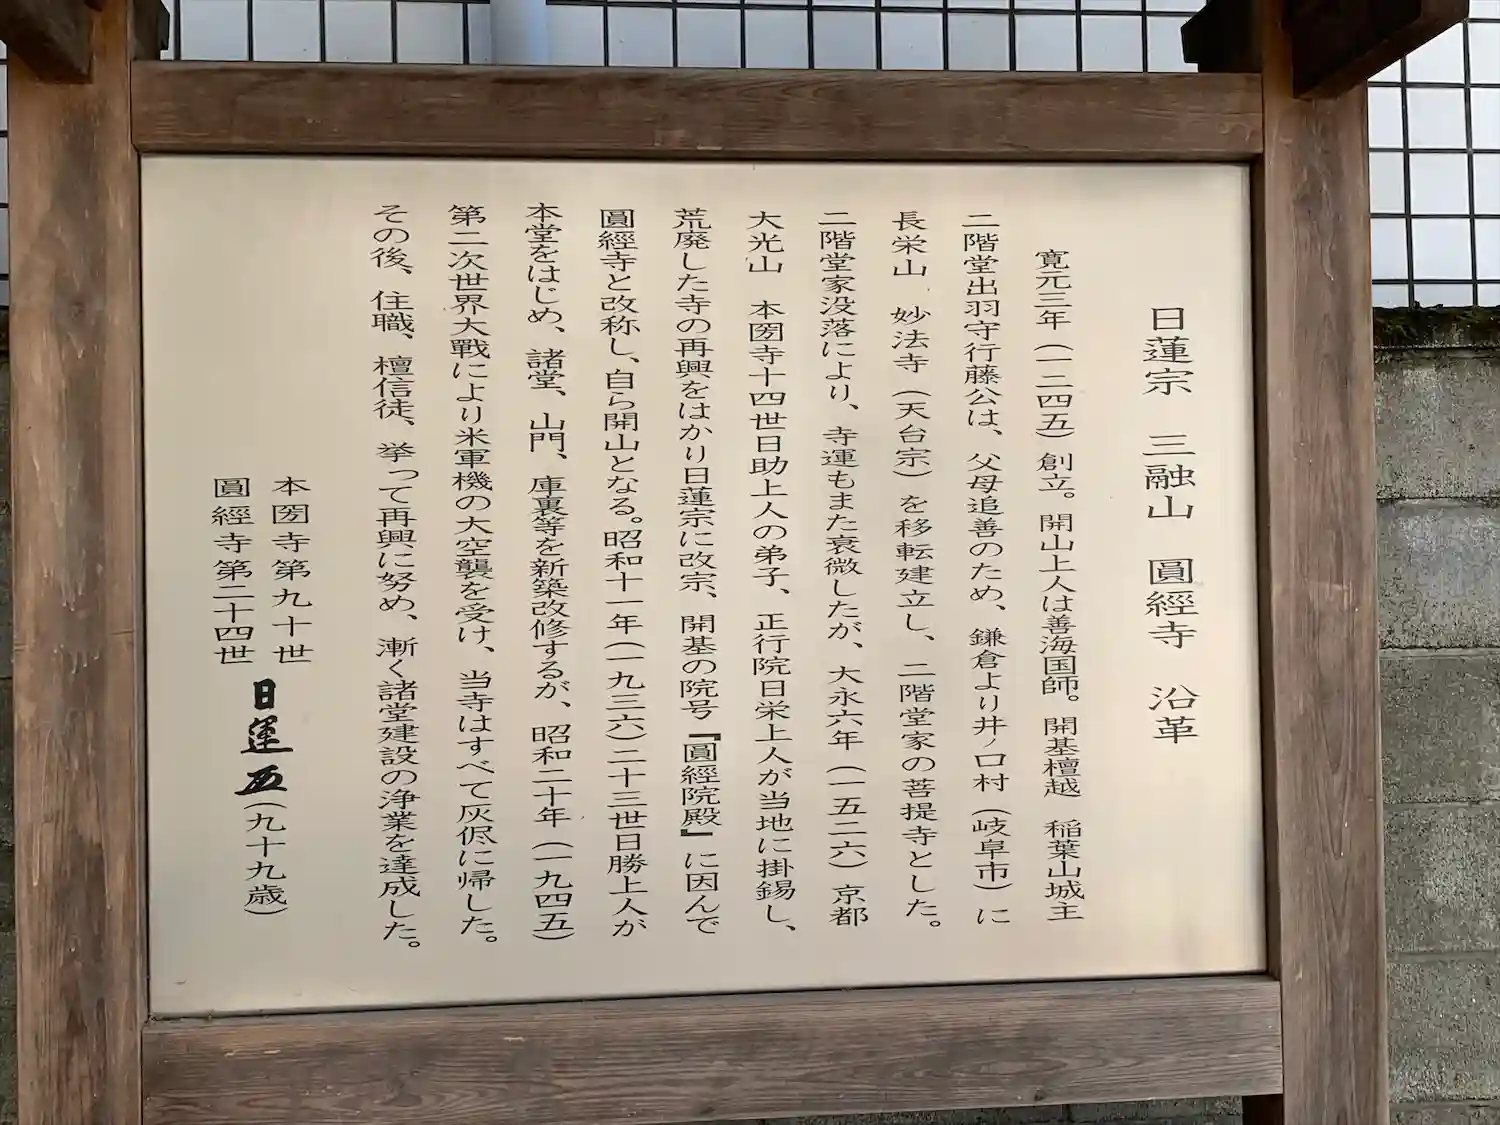 日蓮宗　三融山　圓經寺　沿革
寛元三年（一二四五）創立。開山上人は善海国師。開基檀越　稲葉山城主
二階堂出羽守行藤公は、父母追善のため、鎌倉より井ノ口村（岐阜市）に
長栄山　妙法寺（天台宗）を移転建立し、二階堂家の菩提寺とした。
二階堂家没落により、寺運もまた衰微したが、大永六年（一五二六）京都
大光山　本圀寺十四世日助上人の弟子、正行院日栄上人が当地に掛錫し、
荒廃した寺の再興をはかり日蓮宗に改宗、開基の院号『圓經院殿』に因んで
圓經寺と改称し、自ら開山となる。昭和十一年（一九三六）二十三世日勝上人が
本堂をはじめ、諸堂、山門、庫裏等を新築改修するが、昭和二十年（一九四五）
第二次世界大戰により米軍機の大空襲を受け、当寺はすべて灰侭に帰した。
その後、住職、檀信徒、挙って再興に努め、漸く諸堂建設の浄業を達成した。
本圀寺第九十世
圓經寺第二十四世
日運（九十九歳）